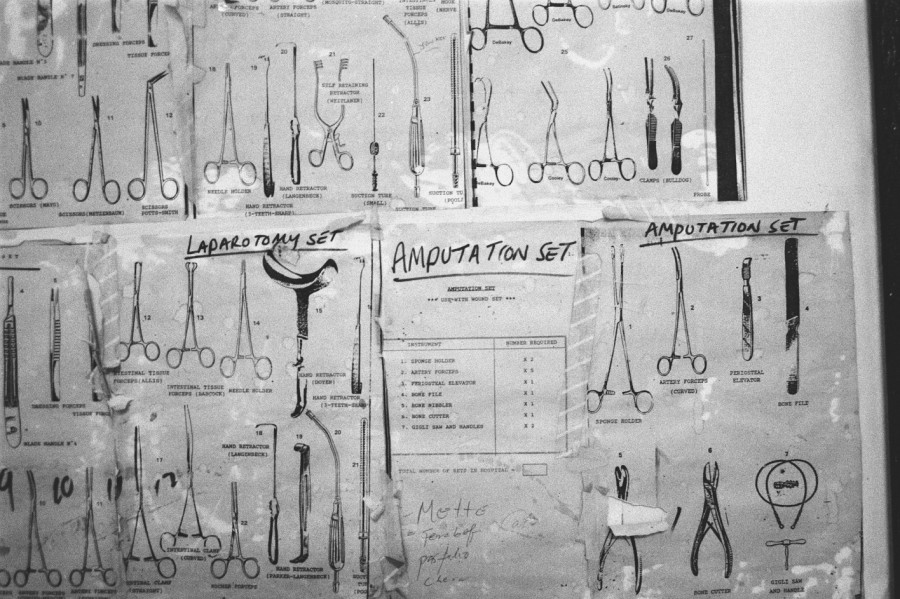 ARTERY FORCEPS
(CURVED)
ARTERY FORCEPS
(STRAIGHT)
TISSUE
FORCEPS
(ALLIS)
DRESSING FORCEPS
TISSUE FORCEPS
BLADE HANDLE Nº 7
10
11
12
SCISSORS (MAYO)
SCISSORS(METZENBAUM)
SCISSORS
POTTS-SMITH
18
19
20
21
22
23
SELF RETAINING
RETRACTOR
(WEITLANER)
NEEDLE HOLDER
HAND RETRACTOR
(LANGENBECK)
HAND RETRACTOR
SUCTION TUBE
(SMALL)
SUCTION TUBE
SUCTION TU
(POOL
DeBakey
DeBakey
25
26
27
DeBakey
Cooley
Cooley
CLAMPS (BULLDOG)
PROBE
LAPAROTOMY SET
4
DRESSING FORCEPS
TISSUE FORC
BLADE HANDLE Nº 4
12
13
14
15
INTESTINAL TISSUE
FORCEPS(ALLIS)
INTESTINAL TISSUE
FORCEPS (BABCOCK)
NEEDLE HOLDER
HAND RETRACTOR
(DOYEN)
HAND RETRACTOR
9
10
11
12
17
18
19
20
21
22
HAND RETRACTOR
(LANGENBECK)
INTESTINAL CLAMP
(CURVED)
INTESTINAL CLAMP
(STRAIGHT)
HAND RETRACTOR
(PARKER-LANGENBECK)
AMPUTATION SET
AMPUTATION SET
*** USE WITH WOUND SET ***
INSTRUMENT NUMBER REQUIRED
1. SPONGE HOLDER X 2
2. ARTERY FORCEPS X 5
3. PERIOSTEAL ELEVATOR X 1
4. BONE FILE X 1
5. BONE NIBBLER X 1
6. BONE CUTTER X 1
7. GIGLI SAW AND HANDLES X 2
TOTAL NUMBER OF SETS IN HOSPITAL =
Mette
portfolio
AMPUTATION SET
1
2
3
4
SPONGE HOLDER
ARTERY FORCEPS
(CURVED)
PERIOSTEAL
ELEVATOR
BONE FILE
5
6
7
BONE CUTTER
GIGLI SAW
AND HANDLE